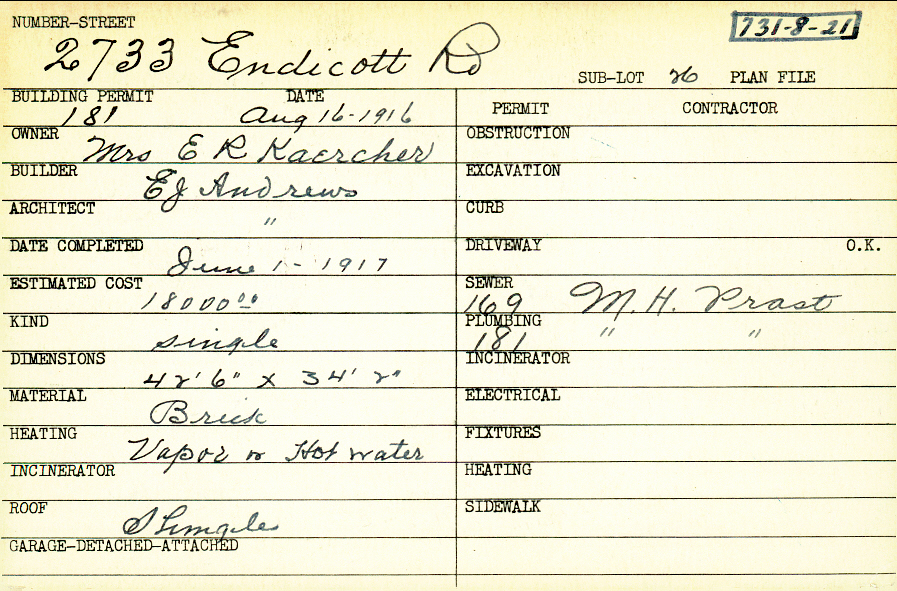 NUMBER-STREET
731-8-21
2733 Endicott Rd
SUB-LOT 26 PLAN FILE
BUILDING PERMIT DATE
181 Aug 16-1916
PERMIT CONTRACTOR
OWNER
Mrs E R Kaercher
OBSTRUCTION
BUILDER
EJ Andrews
EXCAVATION
ARCHITECT
"
CURB
DATE COMPLETED
June 1 - 1917
DRIVEWAY O.K.
ESTIMATED COST
18000 00
SEWER
169 M. H. Prast
KIND
single
PLUMBING
181 " "
DIMENSIONS
42' 6" x 34' 2"
INCINERATOR
MATERIAL
Brick
ELECTRICAL
HEATING
Vapor or Hot water
FIXTURES
INCINERATOR
HEATING
ROOF
Shingle
SIDEWALK
GARAGE-DETACHED-ATTACHED